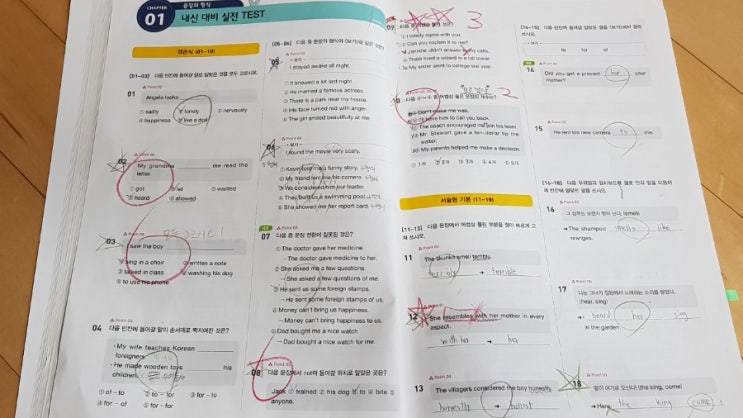 CHAPTER 01
문장의 형식
내신 대비 실전 TEST
객관식 (01~10)
[01~03] 다음 빈칸에 들어갈 말로 알맞은 것을 모두 고르시오.
01
Angela looks
① sadly ② lovely ③ nervously
④ happiness ⑤ like a doll
02
My grandma me read the
letter.
① got ② let ③ wanted
④ heard ⑤ allowed
03
I saw the boy
① sing in a choir ② written a note
③ talked in class ④ washing his dog
⑤ to use his phone
04 다음 빈칸에 들어갈 말이 순서대로 짝지어진 것은?
• My wife teaches Korean
foreigners.
• He made wooden toys his
children.
① of - to ② to - for ③ for - to
④ for - of ⑤ for - for
05
보기
I stayed awake all night.
① It snowed a lot last night.
② He married a famous actress.
③ There is a park near my house.
④ His face turned red with anger.
⑤ The girl smiled beautifully at me.
06
보기
I found the movie very scary.
① Kevin told me a funny story.
② My friend lent me his camera.
③ We considered him our leader.
④ They built us a swimming pool.
⑤ She showed me her report card.
07 다음 중 문장 전환이 잘못된 것은?
① The doctor gave her medicine.
→ The doctor gave medicine to her.
② She asked me a few questions.
→ She asked a few questions of me.
③ He sent us some foreign stamps.
→ He sent some foreign stamps of us.
④ Money can't bring us happiness.
→ Money can't bring happiness to us.
⑤ Dad bought me a nice watch.
→ Dad bought a nice watch for me.
08 다음 문장에서 not이 들어갈 위치로 알맞은 곳은?
Jack ① trained ② his dog ③ to ④ bite ⑤
anyone.
09
3
① I totally agree with you.
② Can you explain it to me?
③ Jane didn't answer my calls.
④ There lived a wizard in a tall tower.
⑤ My sister went to college last year.
10
2
Don't make me wait.
have him to call you back.
The coach encouraged me join his team.
Mr. Stewart gave a ten-dollar for the
waiter.
My parents helped me make a decision.
① 1개 ② 2개 ③ 3개 ④ 4개 ⑤ 5개
서술형 기본 (11~19)
[11~13] 다음 문장에서 어법상 틀린 부분을 찾아 바르게 고
쳐 쓰시오.
11
The skunk smell terribly.
terribly → terrible
12
She resembles with her mother in every
aspect.
with her → her
13 The villagers considered the boy honestly.
honestly → honest
보기
to for of
14
Did you get a present for your
mother?
15
He lent his new camera to me.
16
그 샴푸는 오렌지 향이 난다. (smell)
→ The shampoo smells like
oranges.
17
(hear, sing)
→ I heard her sing
in the garden.
18
왕이 여기로 오신다! (the king, come)
→ Here the king come !